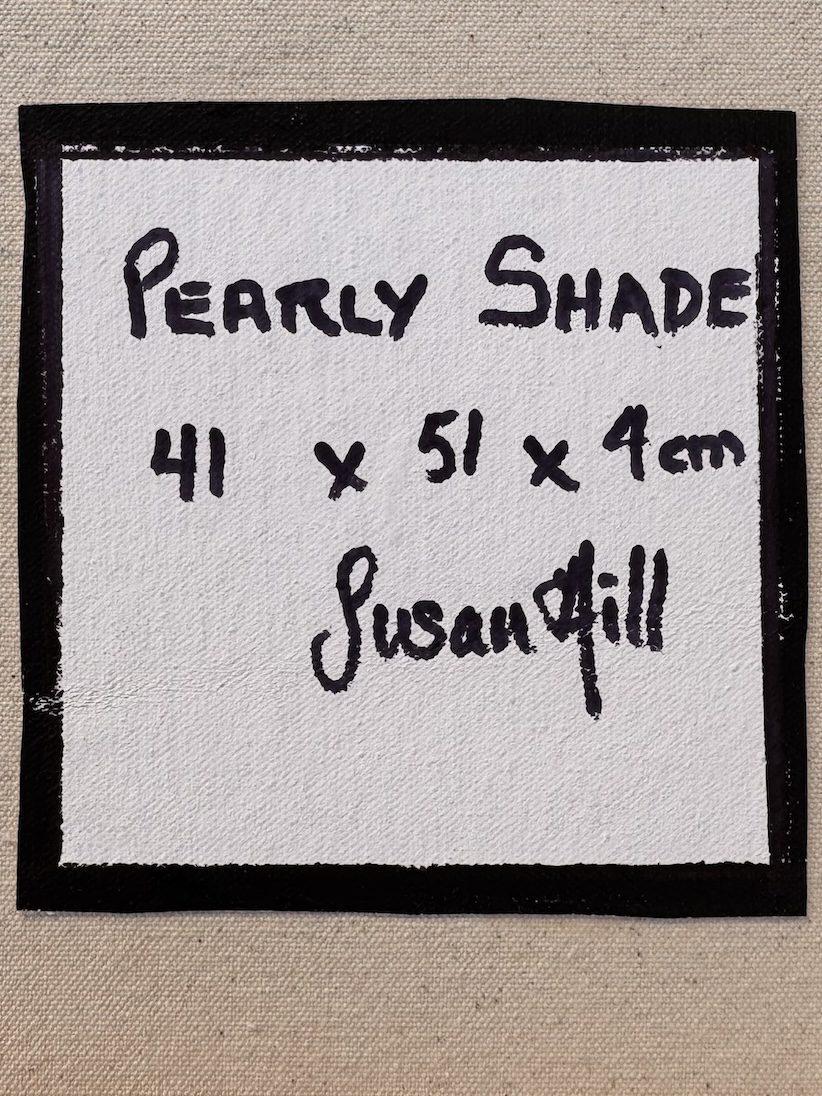 PEARLY SHADE
41 x 51 x 4 cm
Susan Hill